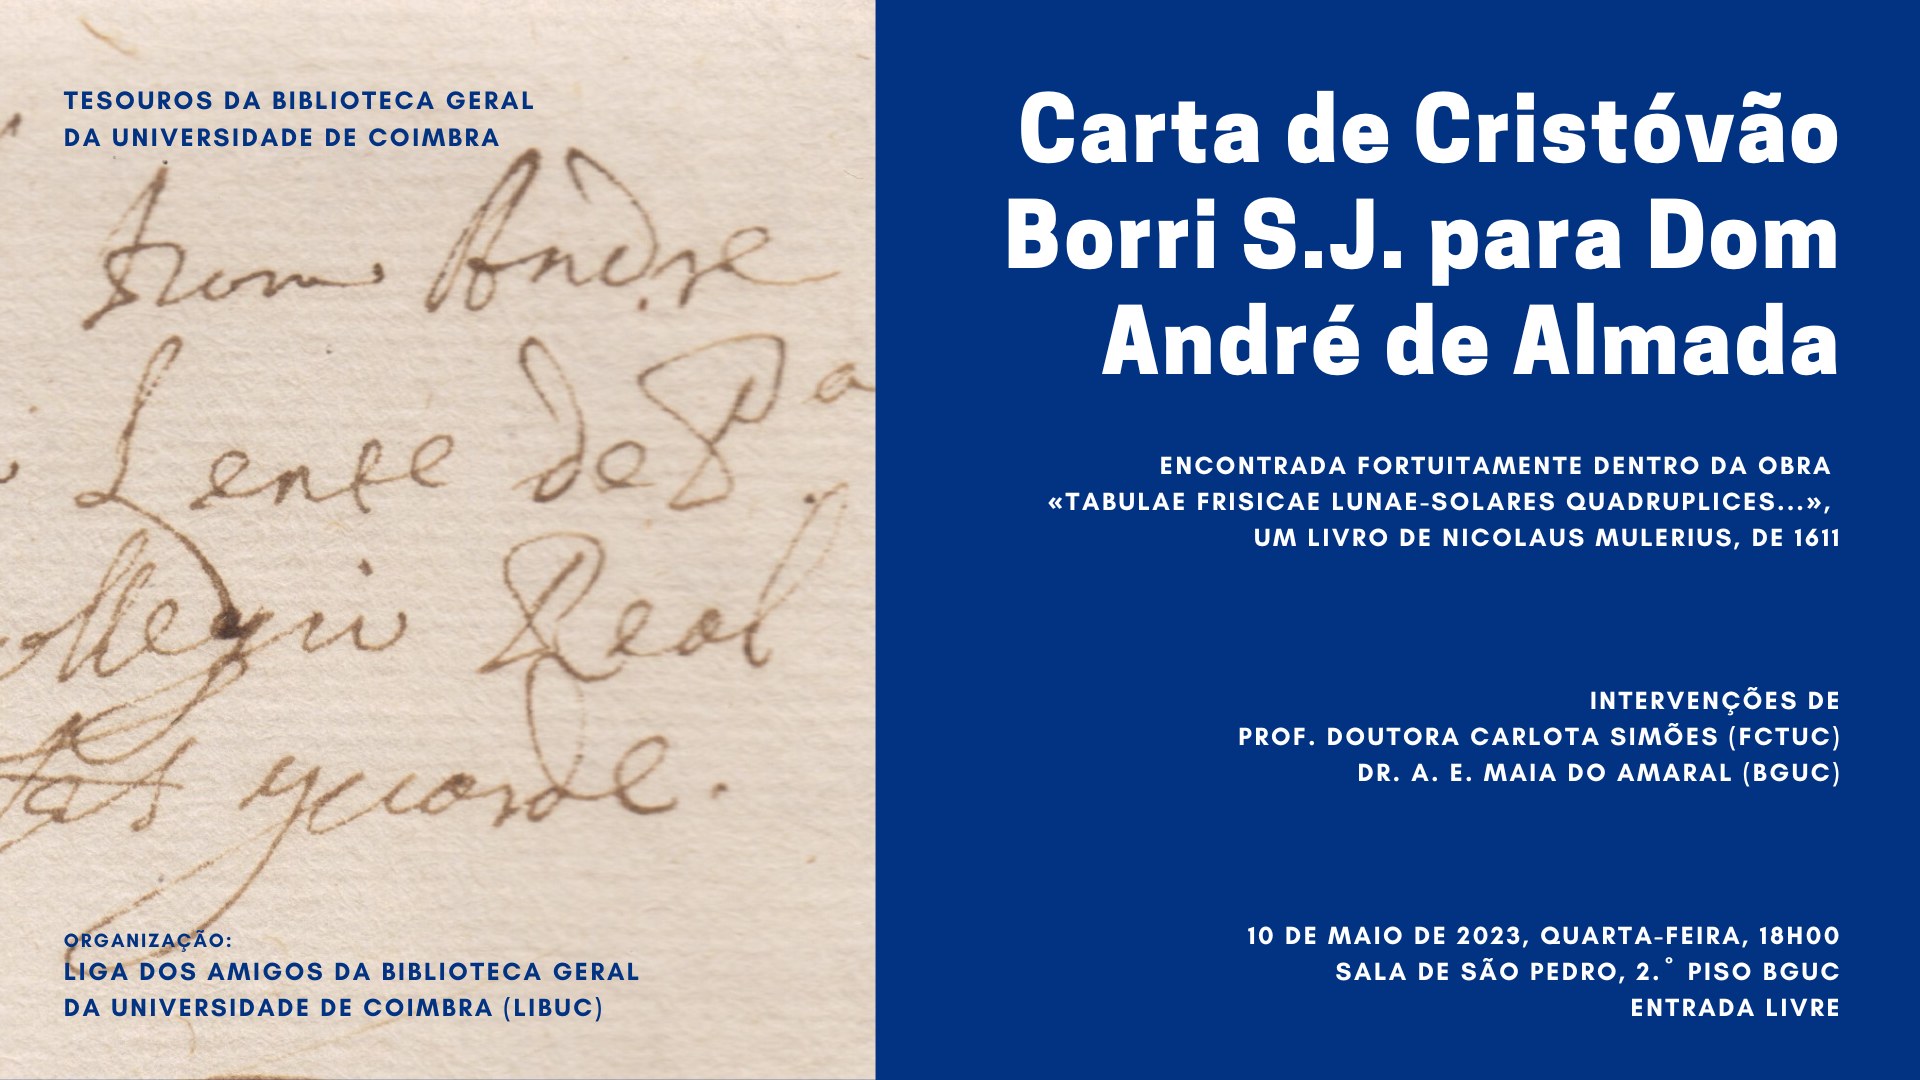 TESOUROS DA BIBLIOTECA GERAL
DA UNIVERSIDADE DE COIMBRA
Dom Andre
Lente de
Real
guarde.
ORGANIZAÇÃO:
LIGA DOS AMIGOS DA BIBLIOTECA GERAL
DA UNIVERSIDADE DE COIMBRA (LIBUC)
Carta de Cristóvão
Borri S.J. para Dom
André de Almada
ENCONTRADA FORTUITAMENTE DENTRO DA OBRA
«TABULAE FRISICAE LUNAE-SOLARES QUADRUPLICES...»,
UM LIVRO DE NICOLAUS MULERIUS, DE 1611
INTERVENÇÕES DE
PROF. DOUTORA CARLOTA SIMÕES (FCTUC)
DR. A. E. MAIA DO AMARAL (BGUC)
10 DE MAIO DE 2023, QUARTA-FEIRA, 18H00
SALA DE SÃO PEDRO, 2.° PISO BGUC
ENTRADA LIVRE